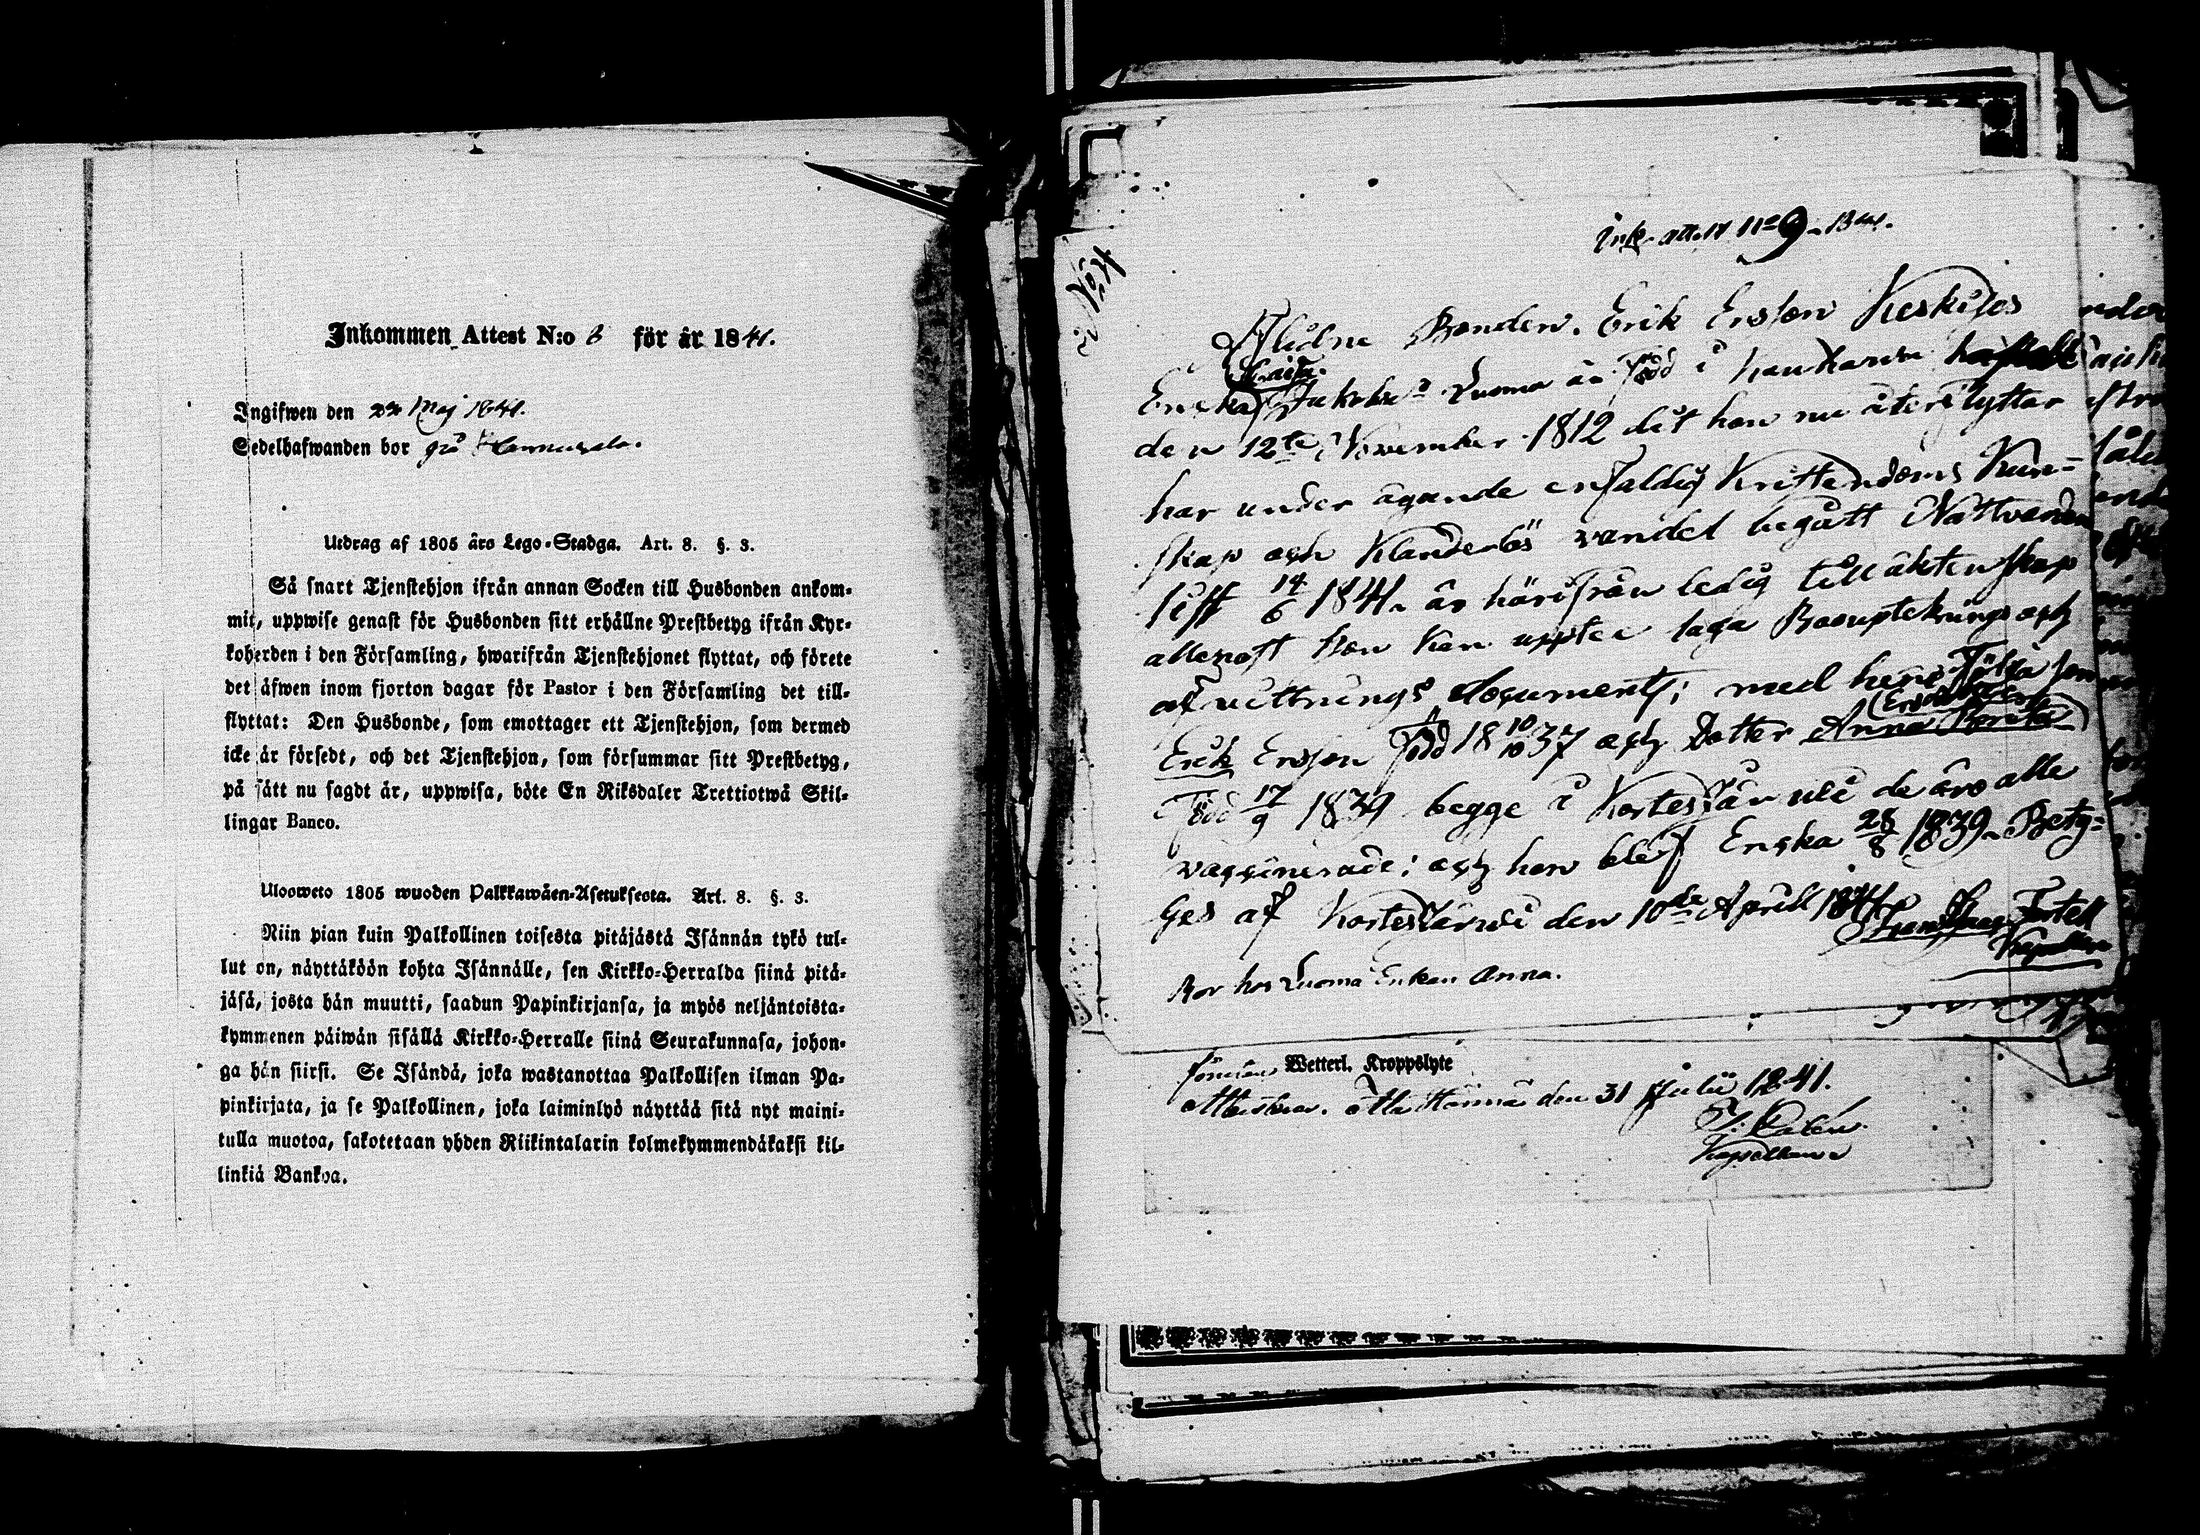 Inkommen Attest N:o 8 för år 1841.
Ingifwen den 22 Maj 1841.
Sedelhafwanden bor på
Utdrag af 1805 års Lego-Stadga. Art. 8. §. 3.
Så snart Tjenstehjon ifrån annan Socken till Husbonden ankom-
mit, uppwise genast för Husbonden sitt erhållne Prestbetyg ifrån Kyr-
koherden i den Församling, hwarifrån Tjenstehjonet flyttat, och förete
det äfwen inom fjorton dagar för Pastor i den Församling det till-
flyttat: Den Husbonde, som emottager ett Tjenstehjon, som dermed
icke är försedt, och det Tjenstehjon, som försummar sitt Prestbetyg,
på sätt nu sagdt är, uppwisa, böte En Riksdaler Trettiotwå Skil-
lingar Banco.
Ulosweto 1805 wuoden Palkkawäen-Asetuksesta. Art. 8. §. 3.
Niin pian kuin Palkollinen toisesta pitäjästä Isännän tykö tul-
lut on, näyttäköön kohta Isännälle, sen Kirkko-Herralda siinä pitä-
jäsä, josta hän muutti, saadun Papinkirjansa, ja myös neljäntoista-
kymmenen päiwän sisällä Kirkko-Herralle siinä Seurakunnasa, johon-
ga hän siirsi. Se Isändä, joka wastanottaa Palkollisen ilman Pa-
pinkirjata, ja se Palkollinen, joka laiminlyö näyttää sitä nyt maini-
tulla muotoa, sakotetaan yhden Riikintalarin kolmekymmendäkaksi kil-
linkiä Bankoa.
Ink. att. N no 9 1841.
Aflidne Bonden Erik Ersson Keskisos
Caisa
Encka Jakobs Dr Luoma är född i Kauhava
den 12te November 1812 dit hon nu återflyttar
har under ägande enfaldig Kristendoms Kun-
skap och Klanderlös vandel begått Nattvarden
sist 14/6 1841 är härifrån ledig till äktenskap
allenast hon kan uppte laga Bouptekning och
afvittrings document; med hene följa son
Erik Ersson född 18 10/10 37 och Dotter Anna
född 17/9 1839 begge i Kortesjärvi de äro alle
vaccinerade; och hon blef Encka 28/8 1839. Betyg-
ges af Kortesjärvi den 10de April 1841
Fortell
Kapellan
Bor hos Luoma Erkan Anna.
Wetterl. Kroppslyte
attesteras. den 31 Julii 1841.
Kapellan